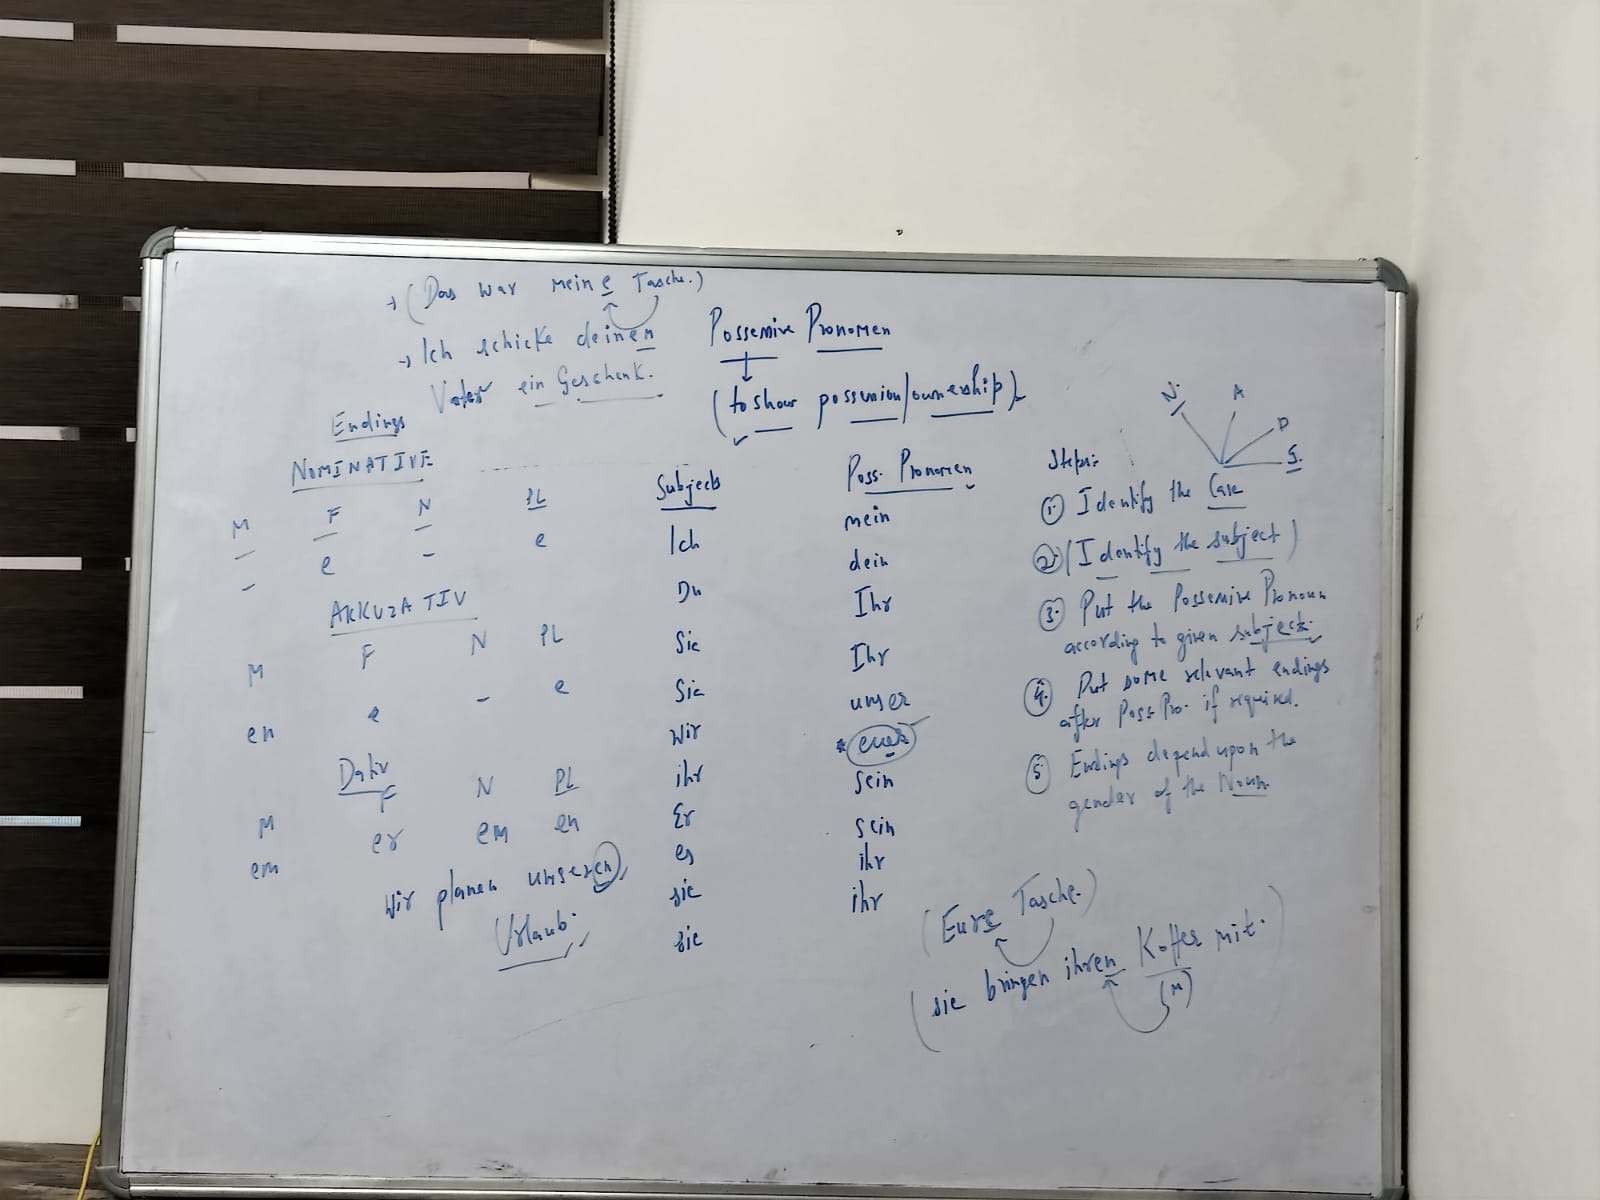 → (Das war meine Tasche.)
→ Ich schicke deinen
Vater ein Geschenk.
Possessive Pronomen
(to show possession/ownership)
Endings
NOMINATIVE
M F N PL
- e - e
AKKUZATIV
M F N PL
en e - e
Dativ
M F N PL
em er em en
Wir planen unseren
Urlaub.
Subjects Poss. Pronomen
Ich mein
Du dein
Sie Ihr
Sie Ihr
Wir unser
ihr * euer
Er sein
es sein
sie ihr
sie ihr
N. A D
Steps:
① Identify the Case
② (Identify the subject)
③ Put the Possessive Pronoun
according to given subject.
④ Put some relevant endings
after Poss Pro. if required.
⑤ Endings depend upon the
gender of the Noun.
(Eure Tasche.)
(sie bringen ihren Koffer mit.
(M)